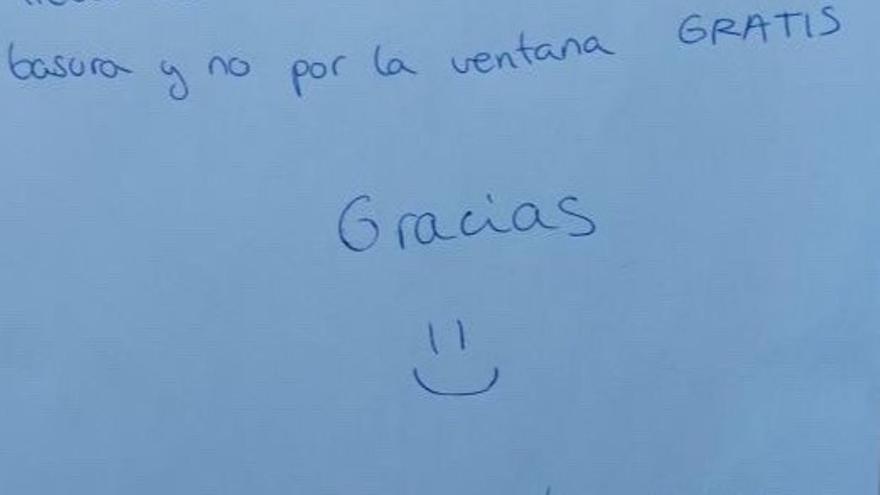 basura y no por la ventana GRATIS
Gracias